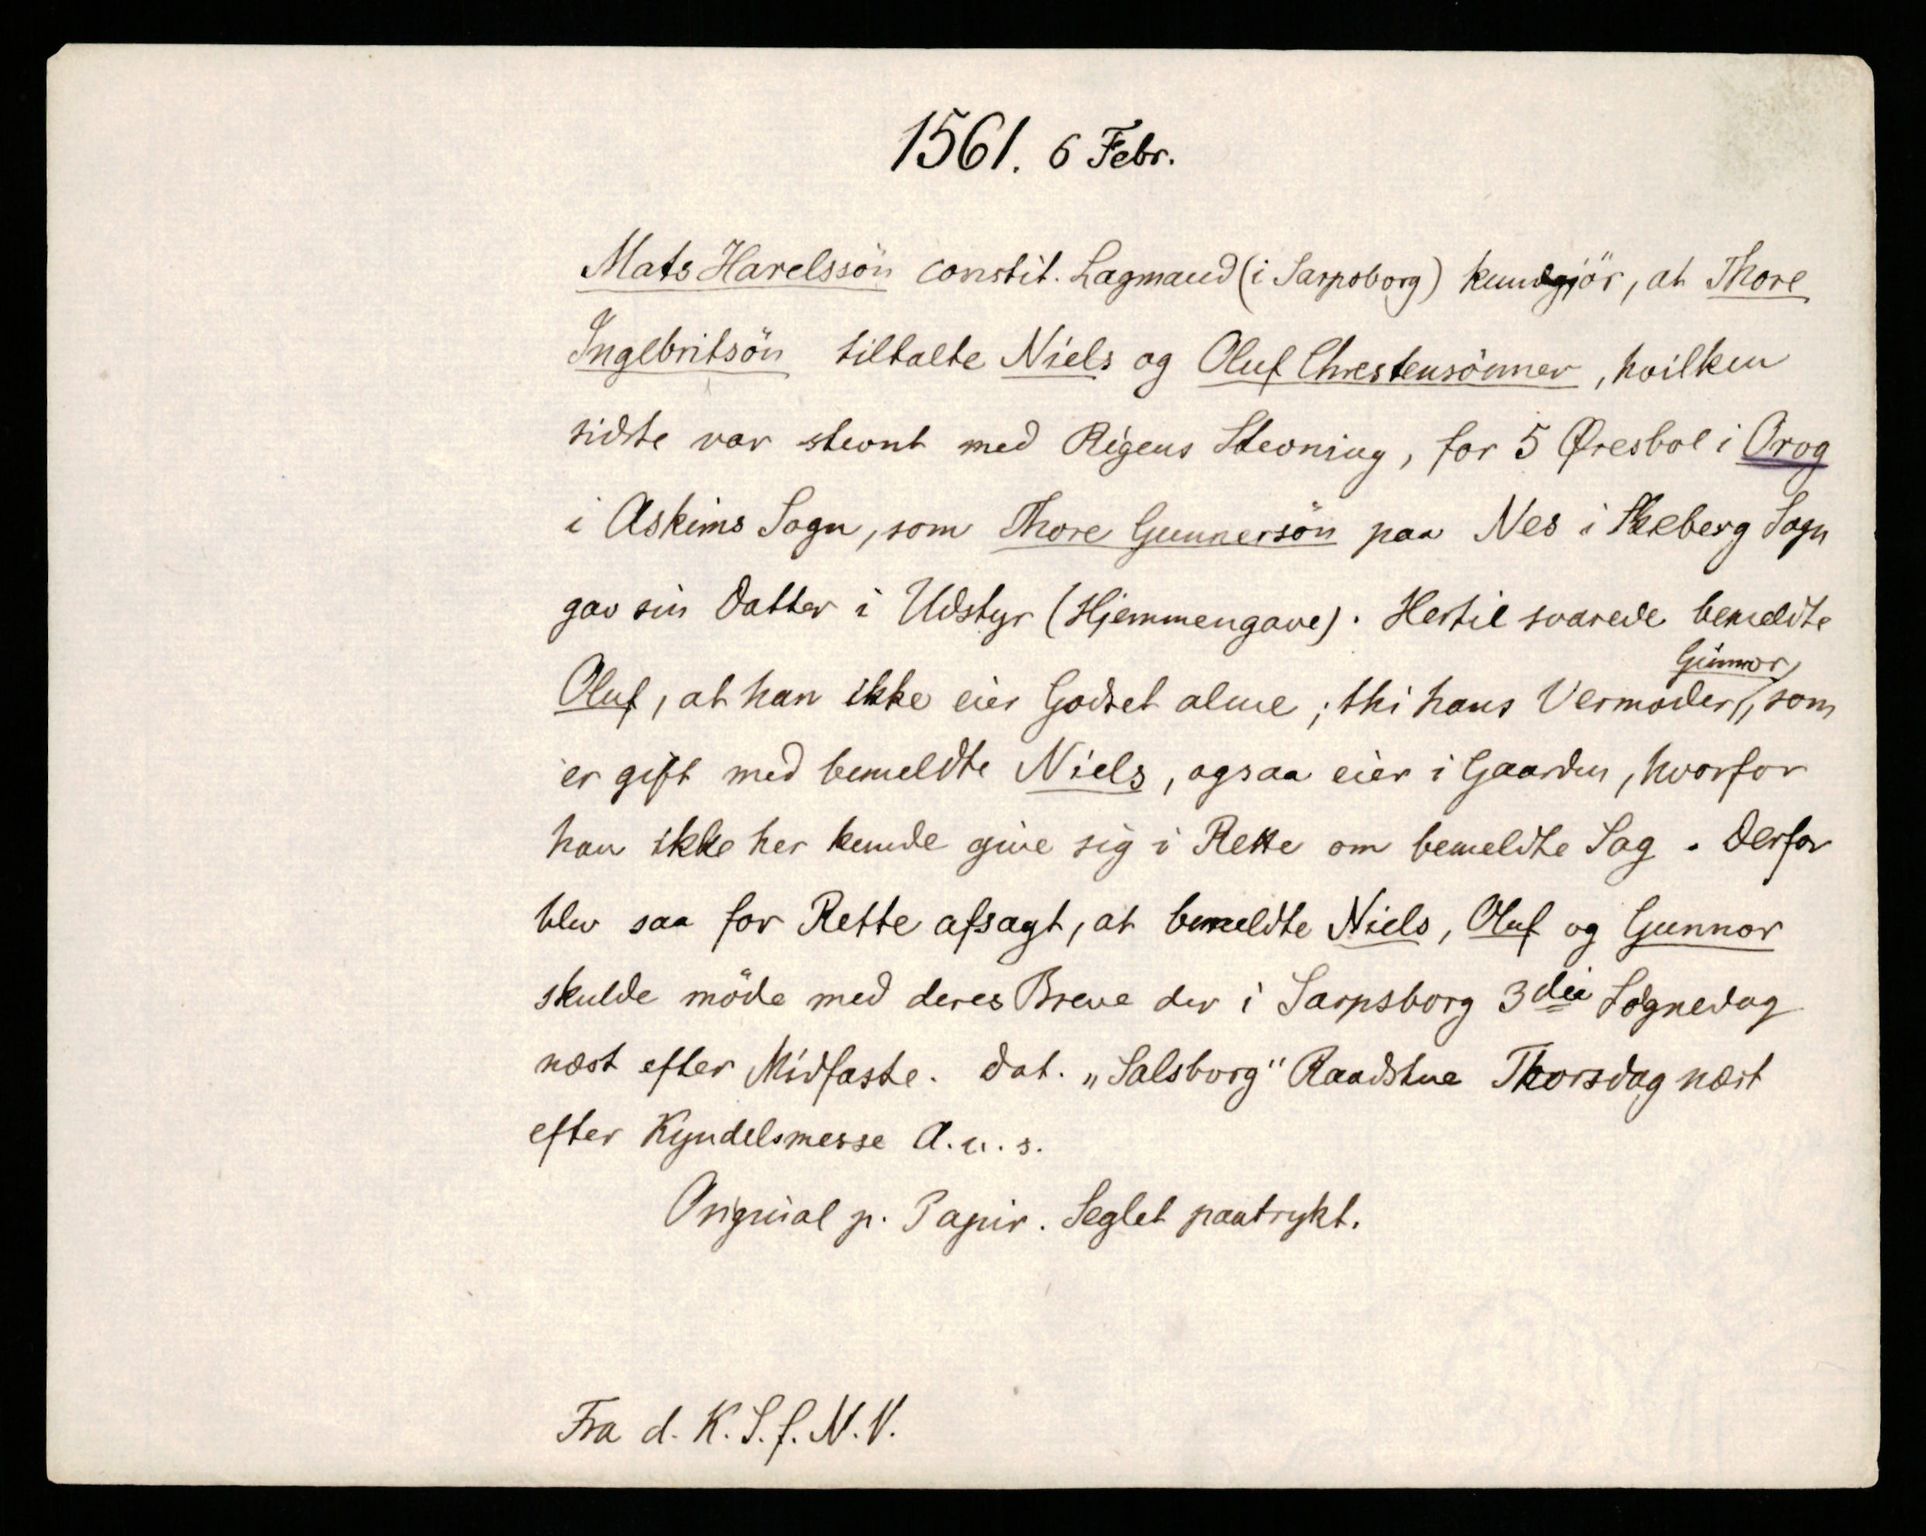 1561. 6 Febr.
Mats Harelssön constit. Lagmand (i Sarpsborg) kundgjör, at Thore
Ingebritsön tiltalte Niels og Oluf Chrestensönner, hvilken
sidste var stevnt med Rigens Stevning, for 5 Øresbol i Orog
i Askims Sogn, som Thore Gunnersön paa Nes i Skeberg Sogn
gav sin Datter i Udstyr (Hjemmengave). Hertil svarede bemeldte
Oluf, at han ikke eier Godset alene; thi hans Vermoder Gunnor, som
er gift med bemeldte Niels, ogsaa eier i Gaarden, hvorfor
han ikke her kunde give sig i Rette om bemeldte Sag. Derfor
blev saa for Rette afsagt, at bemeldte Niels, Oluf og Gunnor
skulde möde med deres Breve der i Sarpsborg 3die Sögnedag
næst efter Midfaste. Dat. „Salsborg" Raadstue Thorsdag næst
efter Kyndelsmesse A. u. s.
Original p. Papir. Seglet paatrykt.
Fra d. K. S. f. N. V.